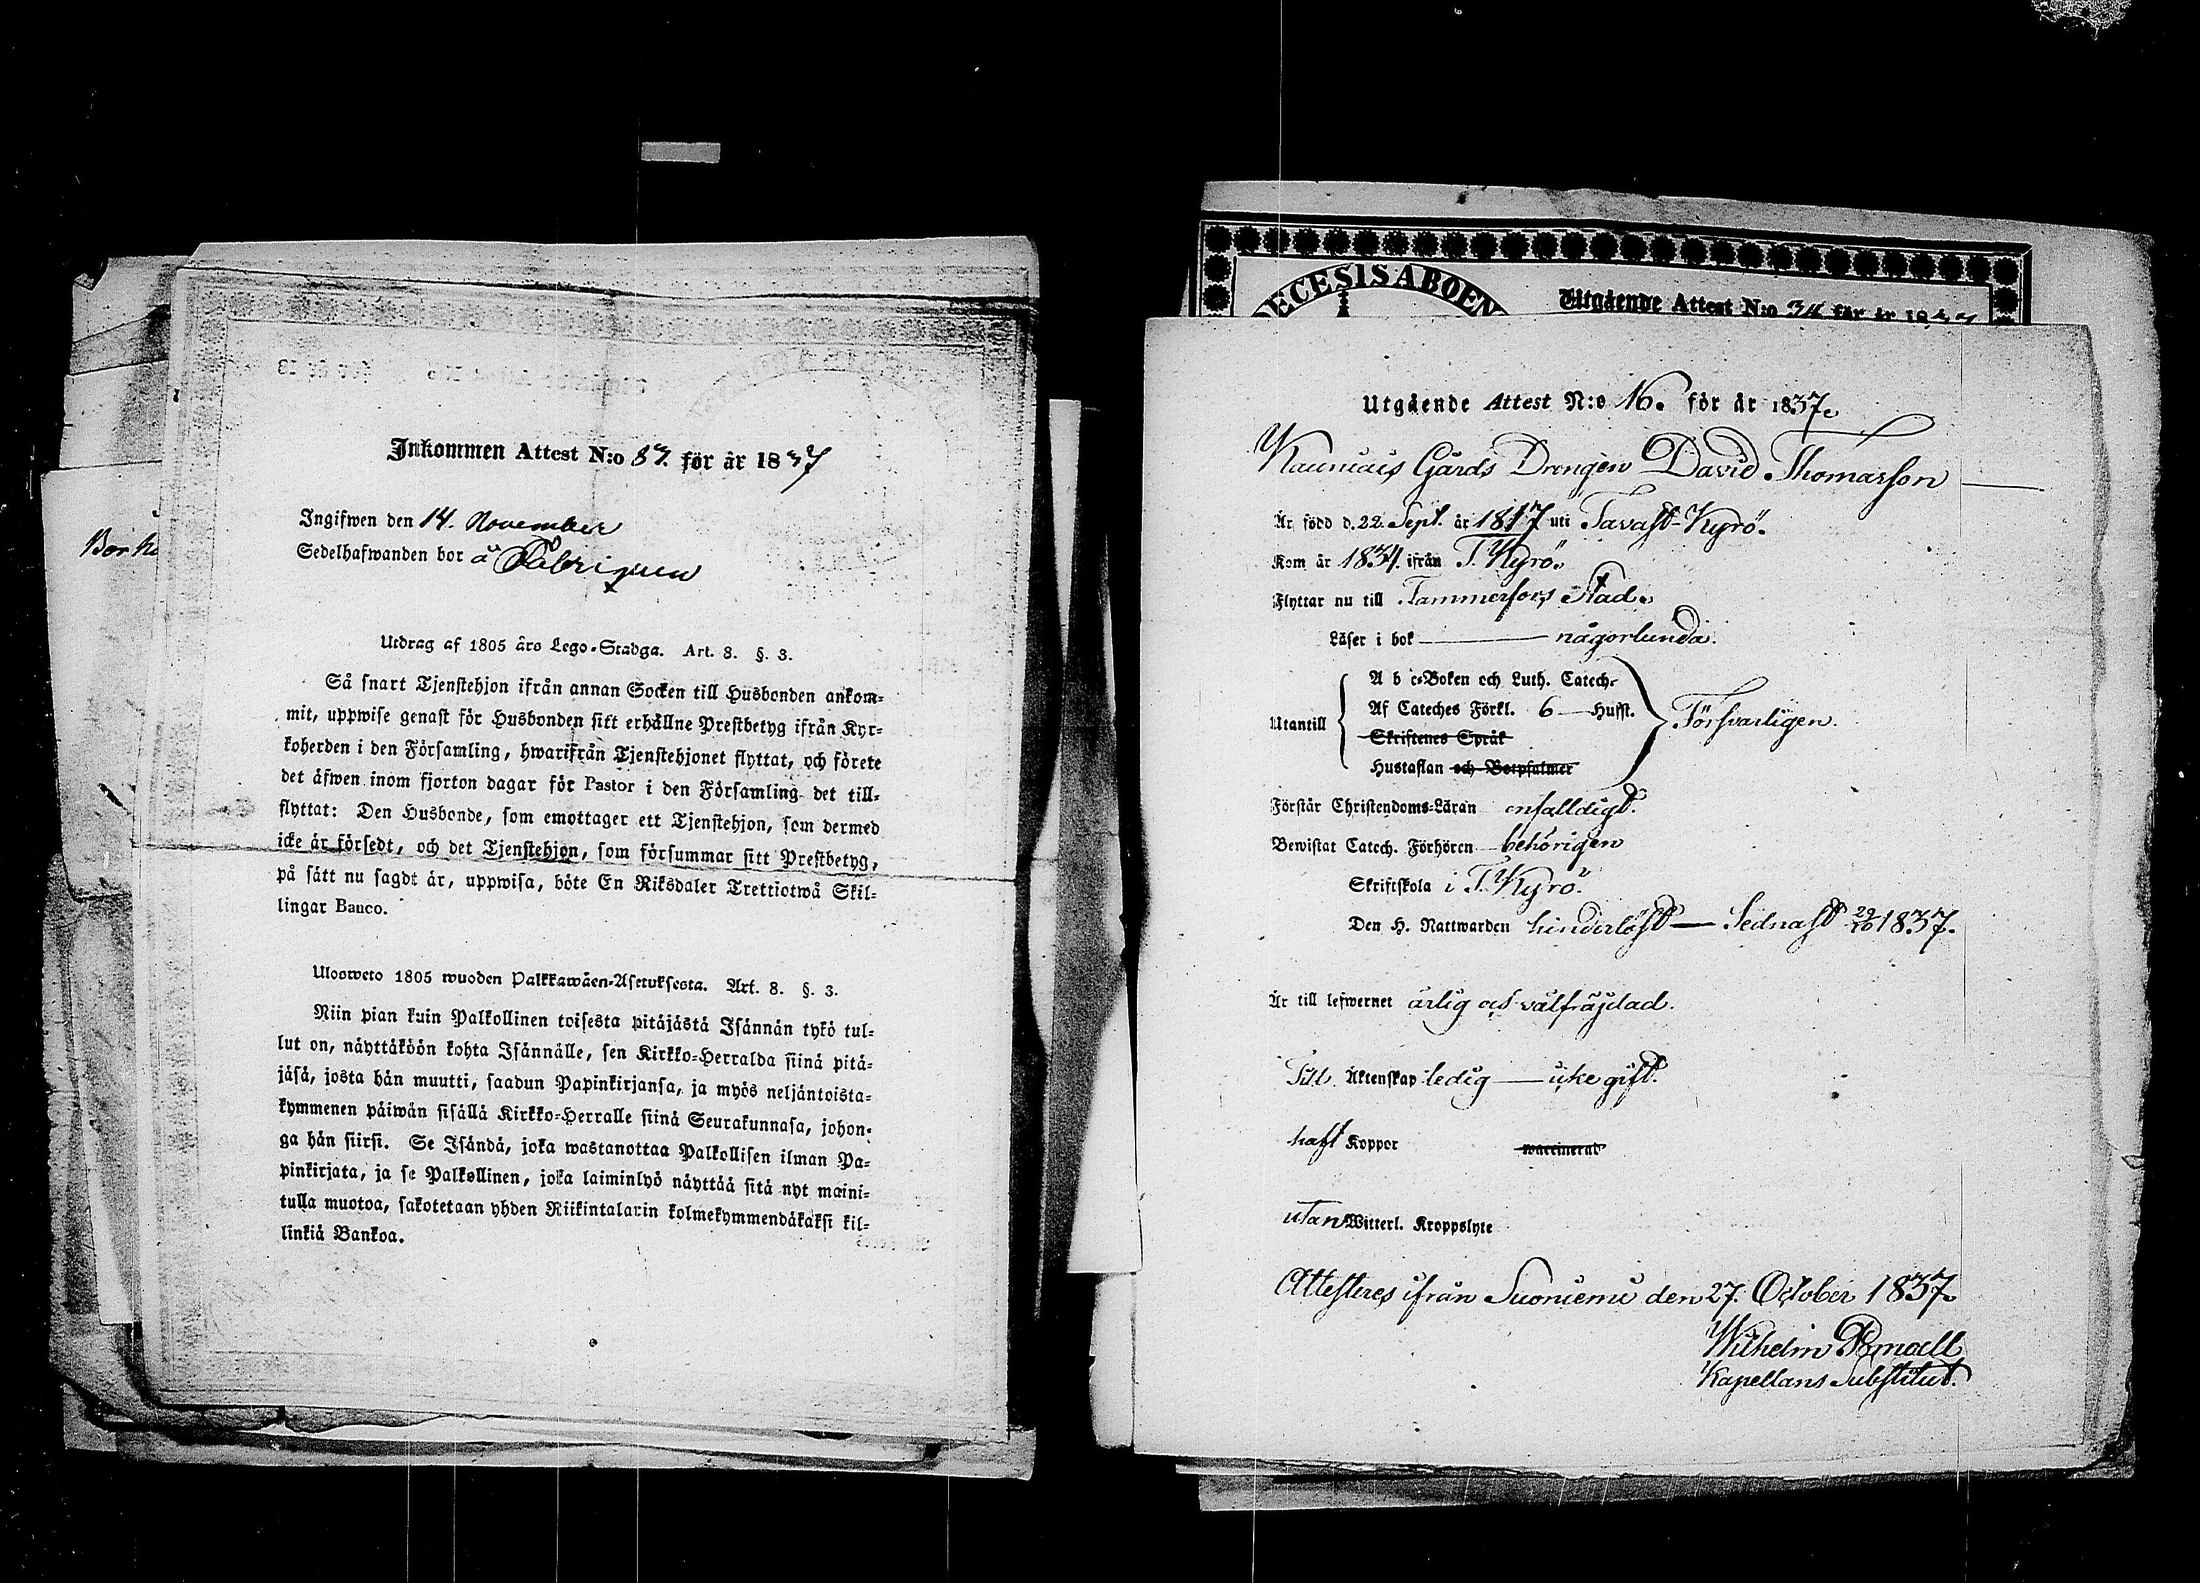 Inkommen Attest N:o 87. för år 1837
Ingifwen den 14. November
Sedelhafwanden bor å Fabriquen
Utdrag af 1805 års Lego-Stadga. Art. 8. §. 3.
Så snart Tjenstehjon ifrån annan Socken till Husbonden ankom-
mit, uppwise genast för Husbonden sitt erhållne Prestbetyg ifrån Kyr-
koherden i den Församling, hwarifrån Tjenstehjonet flyttat, och förete
det äfwen inom fjorton dagar för Pastor i den Församling det till-
flyttat: Den Husbonde, som emottager ett Tjenstehjon, som dermed
icke är försedt, och det Tjenstehjon, som försummar sitt Prestbetyg,
på sätt nu sagdt är, uppwisa, böte En Riksdaler Trettiotwå Skil-
lingar Banco.
Ulosweto 1805 wuoden Palkkawäen-Asetuksesta. Art. 8. §. 3.
Niin pian kuin Palkollinen toisesta pitäjästä Isännän tykö tul-
lut on, näyttäköön kohta Isännälle, sen Kirkko-Herralda siinä pitä-
jäsä, josta hän muutti, saadun Papinkirjansa, ja myös neljäntoista-
kymmenen päiwän sisällä Kirkko-Herralle siinä Seurakunnasa, johon-
ga hän siirsi. Se Isändä, joka wastanottaa Palkollisen ilman Pa-
pinkirjata, ja se Palkollinen, joka laiminlyö näyttää sitä nyt maini-
tulla muotoa, sakotetaan yhden Riikintalarin kolmekymmendäkaksi kil-
linkiä Bankoa.
Bor ho
ECESIS ABOEN
Utgående Attest N:o 34 för år 1837
Utgående Attest N:o 16. för år 1837.
Kauniais Gårds Drengen David Thomasson
Är född d. 22. Sept. år 1817 uti Tavast-Kyrö.
Kom år 1834. ifrån T. Kyrö.
Flyttar nu till Tammerfors Stad.
Läser i bok någorlunda.
A b c-Boken och Luth. Catech.
Af Cateches Förkl. 6 Hufst.
Utantill Försvarligen.
Skriftenes Språk
Hustaflan och Botpsalmer
Förstår Christendoms-Läran enfalldigt.
Bewistat Catech. Förhören behörigen
Skriftskola i T. Kyrö.
Den H. Nattwarden hinderlöst — Sednast 22/10 1837.
Är till lefwernet ärlig och välfräjdad.
Till Äktenskap ledig — icke gift.
haft Koppor waccinerad
utan Witterl. Kroppslyte
Attesteres ifrån Suoniemi den 27. October 1837.
Wilhelm
Kapellans Substitut.